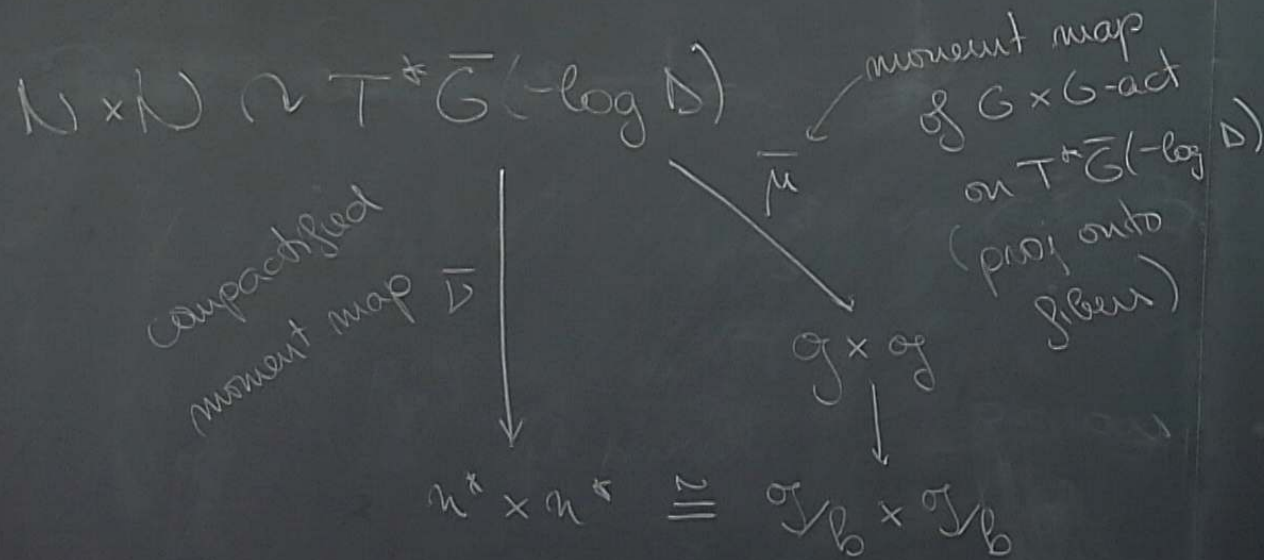 N × N ↷ T* G̅ (-log D)
moment map
of G × G-act
on T* G̅ (-log D)
(proj onto
fibers)
μ̅
compactified
moment map ν̅
𝔤 × 𝔤
𝔫* × 𝔫* ≅ 𝔤/𝔟 × 𝔤/𝔟